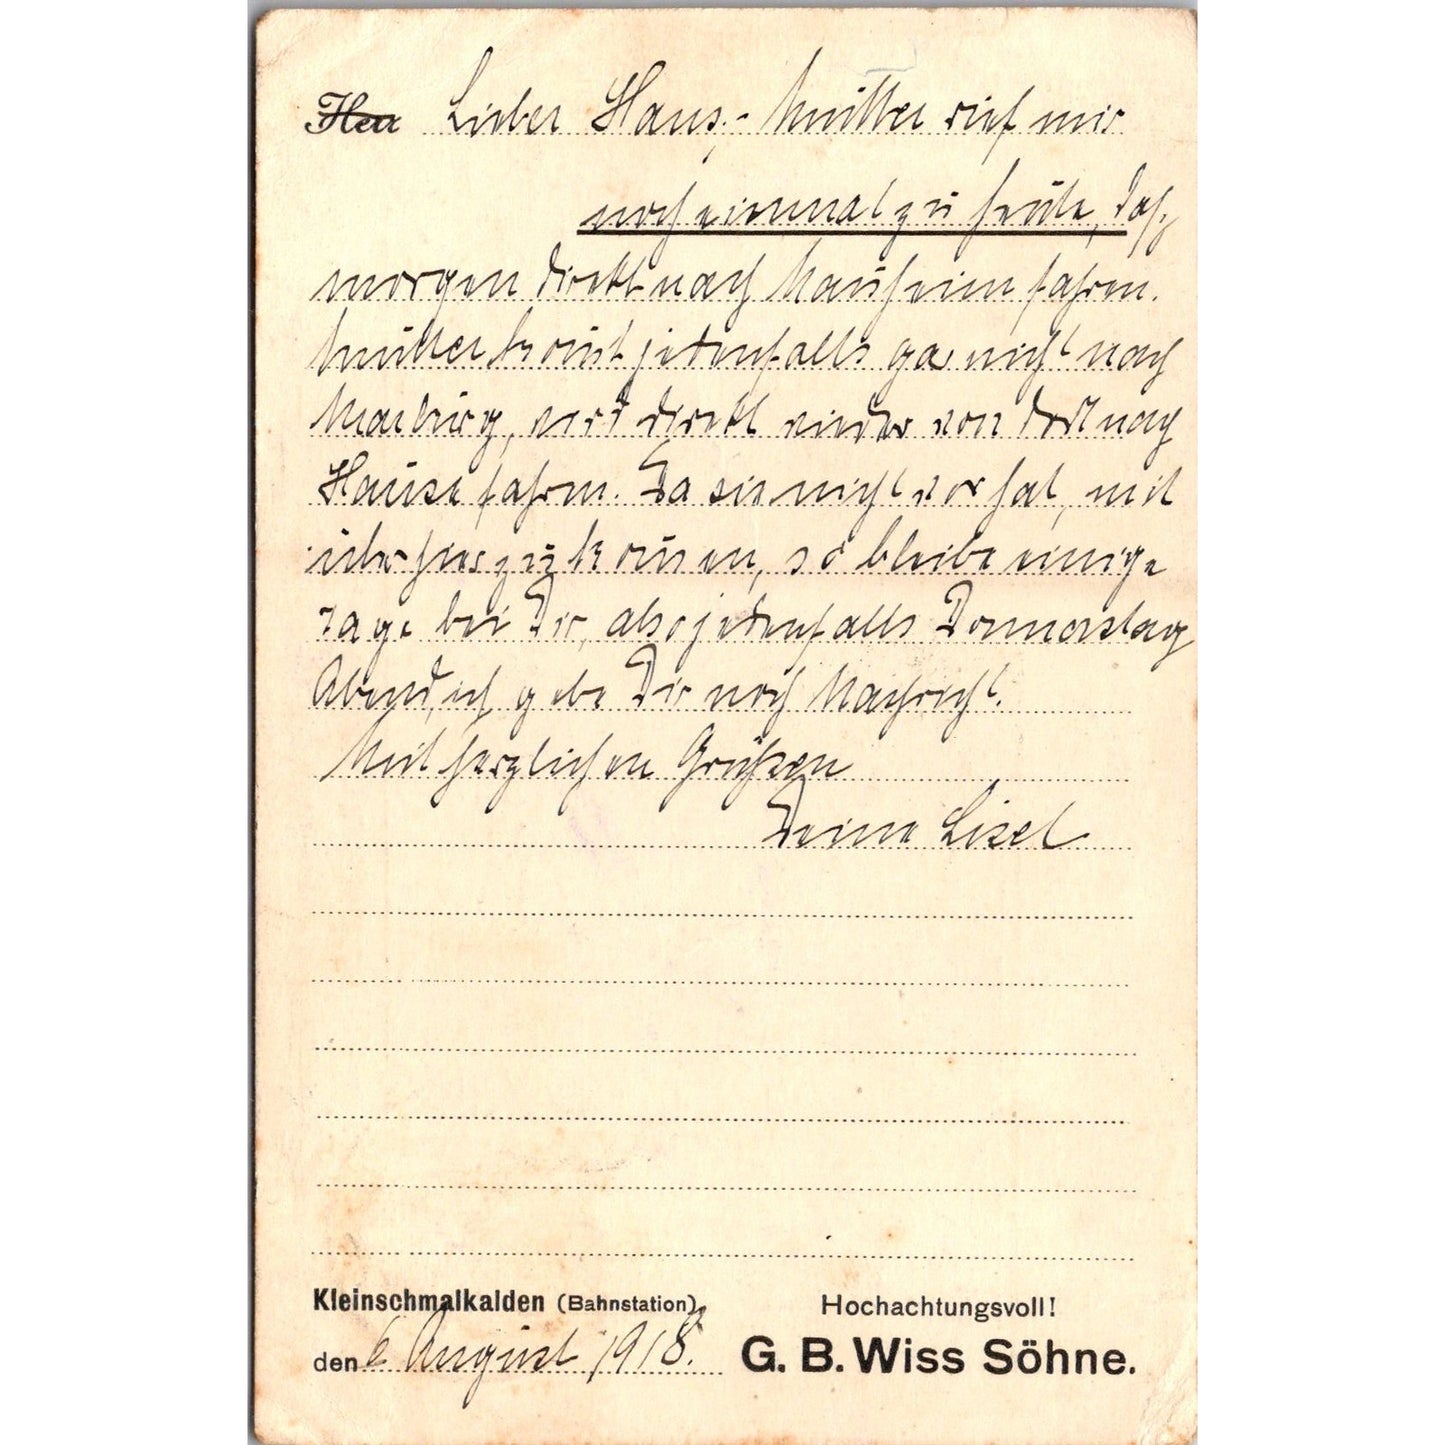 Herr Lieber Hans,- Mutter rief mir
noch einmal zu heute, daß
morgen direkt nach Mauheim fahren.
Mutter kommt jedenfalls gar nicht nach
Marburg, wird direkt wieder von dort nach
Hause fahren. Da sie nicht vor hat, mit
zu kommen, so bleibe einige
Tage bei Dir, also jedenfalls Donnerstag
Abend, ich gebe Dir noch Nachricht.
Mit herzlichen Grüßen
Deine Lisel
Kleinschmalkalden (Bahnstation), Hochachtungsvoll!
den 6 August 1918. G. B. Wiss Söhne.